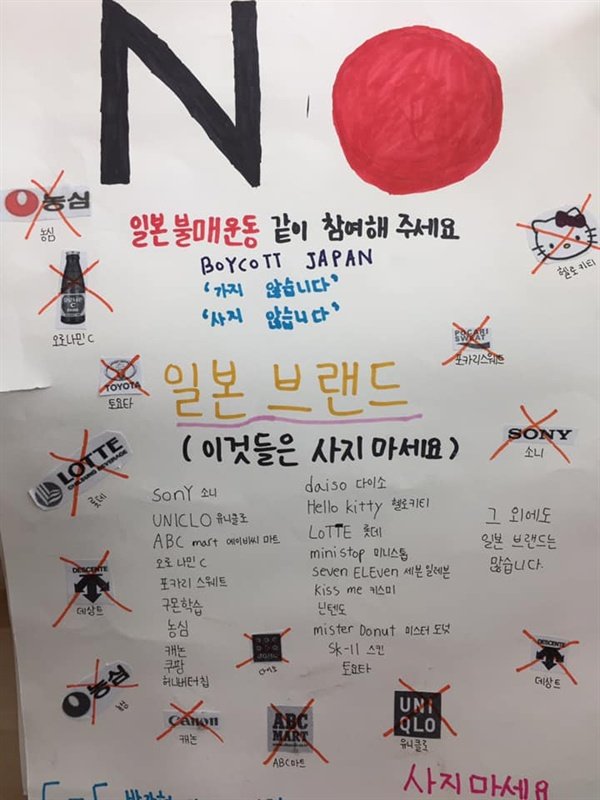 NO
농심
농심
일본 불매운동 같이 참여해 주세요
BOYCOTT JAPAN
'가지 않습니다'
'사지 않습니다'
헬로키티
오로나민 C
POCARI
SWEAT
포카리스웨트
TOYOTA
토요타
일본 브랜드
(이것들은 사지 마세요)
SONY
소니
LOTTE
롯데
sony 소니
UNICLO 유니클로
ABC mart 에이비씨 마트
오로나민 C
포카리 스웨트
구몬학습
농심
캐논
쿠팡
허니버터칩
daiso 다이소
Hello kitty 헬로키티
LoTTE 롯데
ministop 미니스톱
seven ELEven 세븐일레븐
kiss me 키스미
닌텐도
mister Donut 미스터 도넛
SK-II 스킨
토요타
그 외에도
일본 브랜드는
많습니다.
DESCENTE
데상트
다이소
DESCENTE
데상트
농심
농심
Canon
캐논
ABC
MART
ABC마트
UNI
QLO
유니클로
사지마세요